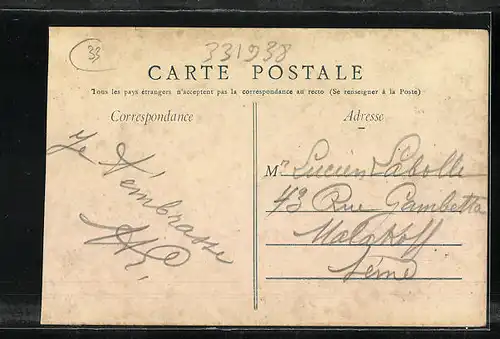 33
331938
CARTE POSTALE
Tous les pays étrangers n'acceptent pas la correspondance au recto (Se renseigner à la Poste)
Correspondance
Je t'embrasse
Adresse
Mr Lucien Labolle
43 Rue Gambetta
Malakoff
Seine